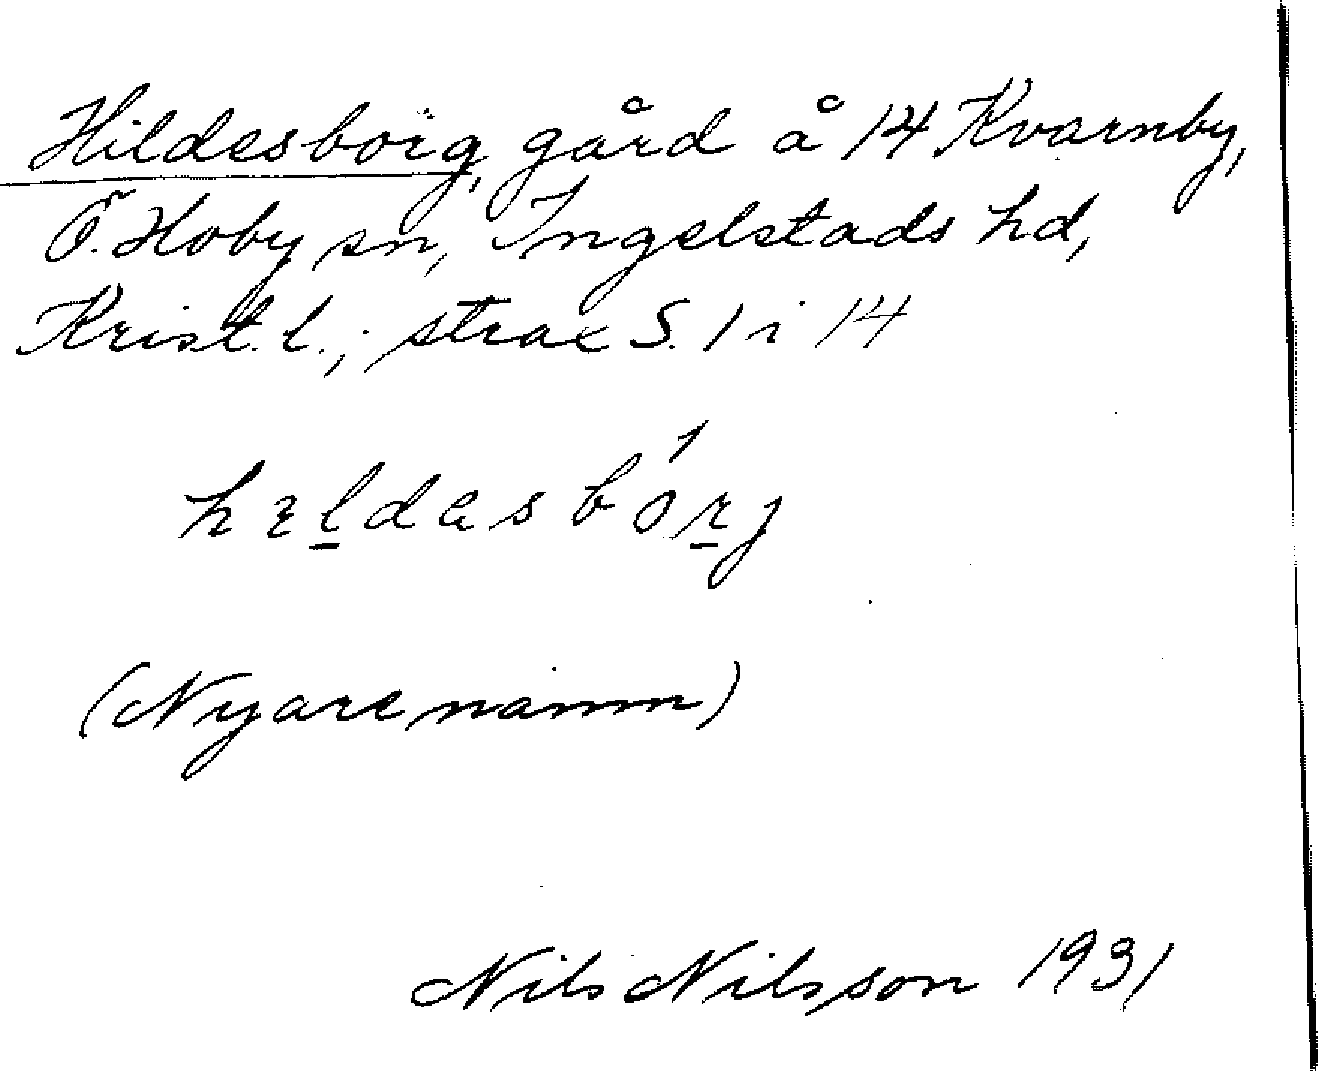 Hildesborg, gård å 14 Kvarnby,
Ö. Hoby sn, Ingelstads hd,
Krist. l.; strax S. 1 i 14
hıldasbórj
(Nyare namn)
Nils Nilsson 1931